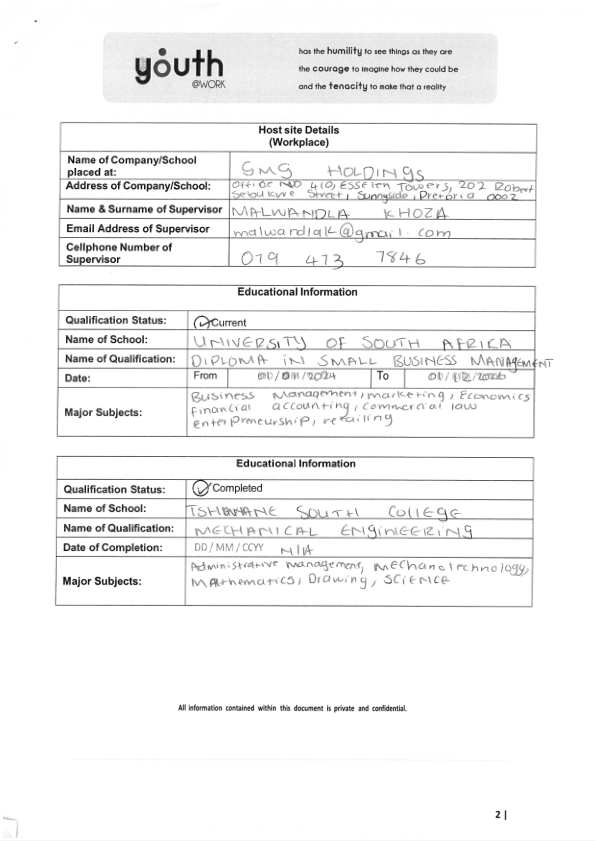 youth
@WORK
has the humility to see things as they are
the courage to imagine how they could be
and the tenacity to make that a reality
Host site Details
(Workplace)
Name of Company/School placed at: GMG HOLDINGS
Address of Company/School: Office NO 410, ESSELEN TOWERS, 202 Robert
Sebukwe Street, Sunnyside, Pretoria 0002
Name & Surname of Supervisor MALWANDLA KHOZA
Email Address of Supervisor malwandlak@gmail.com
Cellphone Number of Supervisor 079 473 7846
Educational Information
Qualification Status: Current
Name of School: UNIVERSITY OF SOUTH AFRIKA
Name of Qualification: DIPLOMA IN SMALL BUSINESS MANAGEMENT
Date: From /2024 To /2026
Major Subjects: Business Management, marketing, Economics
financial accounting, commercial law
enterpreneurship, retailing
Educational Information
Qualification Status: Completed
Name of School: TSHWANE SOUTH COLLEGE
Name of Qualification: MECHANICAL ENGINEERING
Date of Completion: DD / MM / CCYY N/A
Major Subjects: Administrative management, MEChanotechnology,
MAthematics, Drawing, SCIENCE
All information contained within this document is private and confidential.
2 |